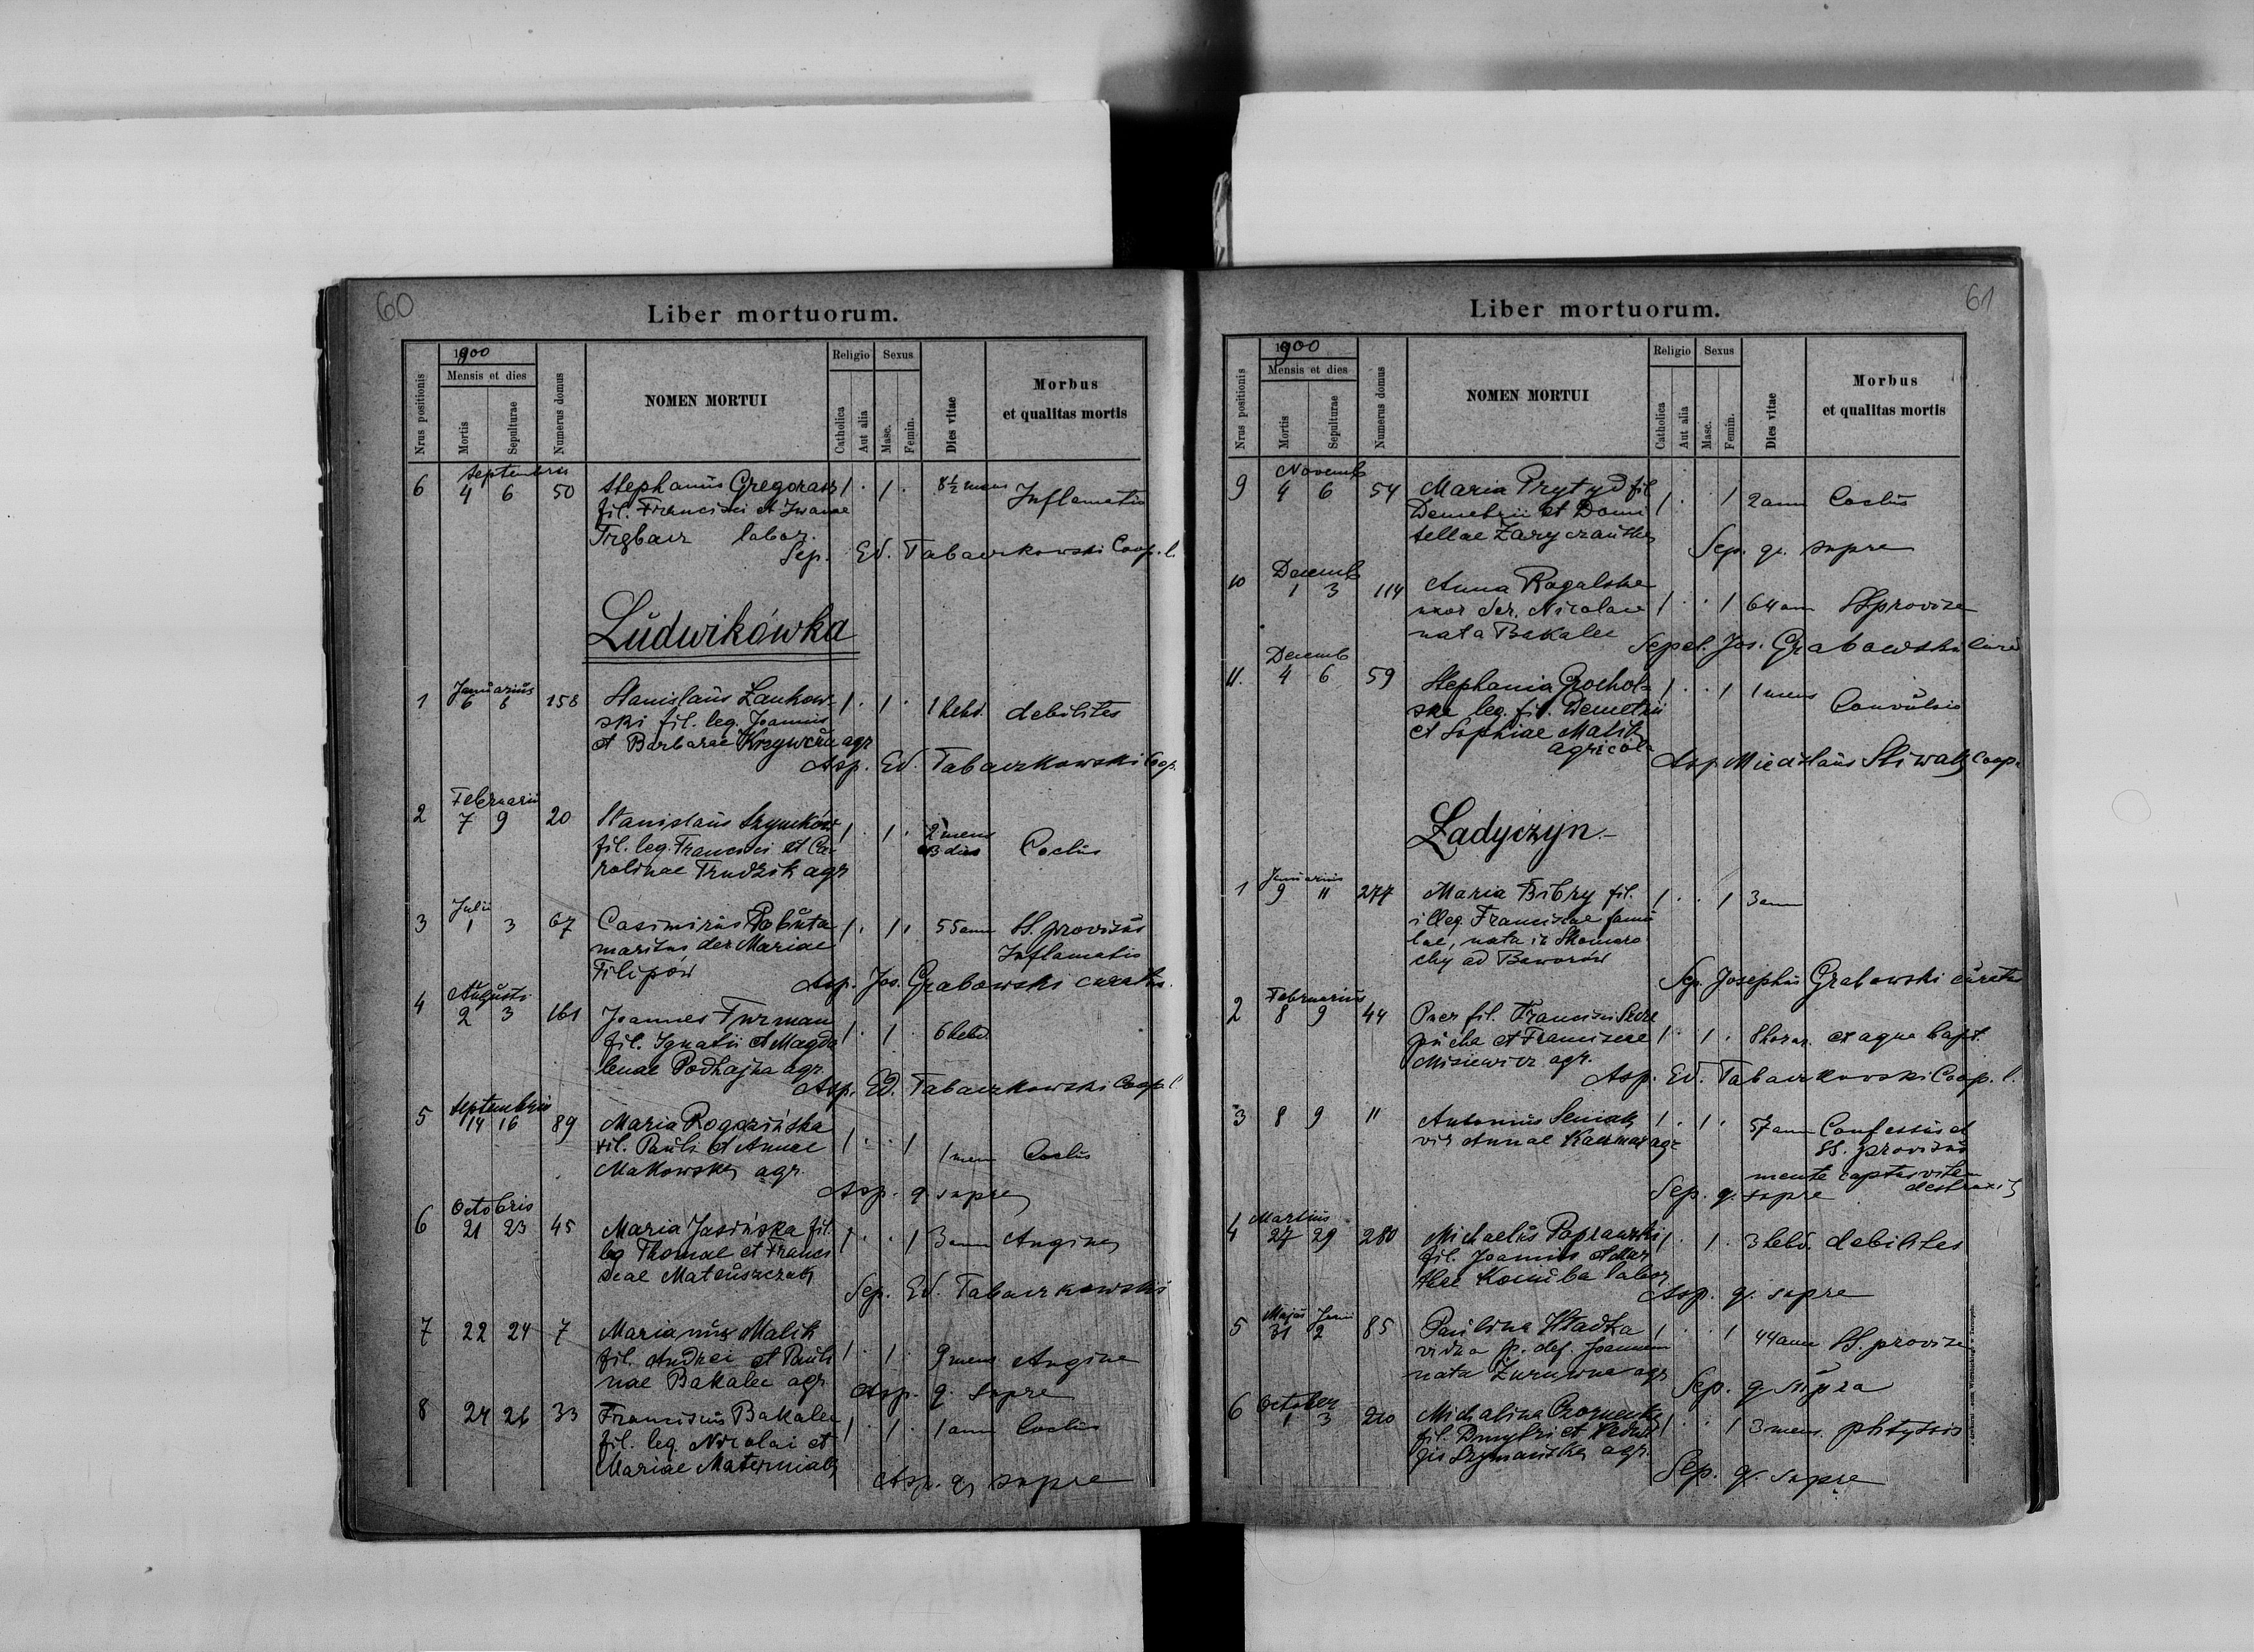 60
Liber mortuorum.
Nrus positionis
1900
Mensis et dies
Mortis
Sepulturae
Numerus domus
NOMEN MORTUI
Religio
Catholica
Aut alia
Sexus
Masc.
Femin.
Dies vitae
Morbus
et qualitas mortis
Septembris
6 4 6 50 Stephanus Gregorasz 1 · 1 · 8½ mens Inflamatio
fil. Francisci et Iwanae
labor.
Sep. Ed. Tabaczkowski Coop. l.
Ludwikówka
Januarius
1 6 8 158 Stanislaus Zankow- 1 · 1 · 1 hebd. debilites
ski fil. leg. Joannis
et Barbarae Krzywczu agr
Asp. Ed. Tabaczkowski Coop.
Februarii
2 7 9 20 Stanislaus Szymków 1 · 1 · 2 mens
fil. leg. Francisci et Ca- dies Coclus
rolinae Trudzik agr
Julii
3 1 3 67 Casimirus Robuta 1 · 1 · 55 ann SS. provisus
maritus der. Mariae Inflamatio
Filipów
Asp. Jos. Grabowski curatus.
Augusti
4 2 3 161 Joannes Furman 1 · 1 6 hebd.
fil. Ignatii et Magda
lenae Podhajna agr.
Asp. Ed. Tabaczkowski Coop. l
Septembris
5 14 16 89 Maria Rogozińska 1 · · 1 1 men Coclus
fil. Pauli et Annae
Makowska agr.
Asp. q. supra
Octobris
6 21 23 45 Maria Jasińska fil. 1 · · 1 3 ann Angina
leg Thomae et Francis
scae Mateuszczak
Sep. Ed. Tabaczkowski
7 22 24 7 Marianus Malik 1 · 1 · 9 mens Angina
fil. Andrei et Pauli
nae Bakalec agr.
Asp. q. supra
8 24 26 33 Franciscus Bakalec 1 · 1 · 1 ann Coclus
fil. leg. Nicolai et
Mariae Materniak
Asp. q. supra
61
Liber mortuorum.
Nrus positionis
1900
Mensis et dies
Mortis
Sepulturae
Numerus domus
NOMEN MORTUI
Religio
Catholica
Aut alia
Sexus
Masc.
Femin.
Dies vitae
Morbus
et qualitas mortis
Novemb
9 4 6 54 Maria Prytyd fil 1 · · 1 2 ann Coclus
Demetrii et Domi
tellae
Sep. q. supra
Decemb
10 1 3 114 Anna Rogalska
uxor der. Nicolai 1 · · 1 64 ann SS provisa
nata Bakalec
Sepel. Jos. Grabowski
Decemb
11. 4 6 59 Stephania Grochol- 1 · · 1 1 mens Convulsio
ska leg. fil. Demetrii
et Sophiae Malik
agricola
Asp. Coop.
Ładyczyn.
Januarius
1 9 11 277 Maria Bibry fil. 1 · · 1 3 ann
illeg. Franciscae famu
lae, nata in Skomoro
chy ad Baworów
Sep. Josephus Grabowski curatus
Februarius
2 8 9 44 Puer fil. Francisci
et Franciscae 1 · 1 · 8 horar. ex aqua bapt.
Misiewicz agr.
Asp. Ed. Tabaczkowski Coop. l.
3 8 9 11 Antonius Seniak 1 · 1 · 57 ann Confessus et
vir Annae Kaczmar agr SS. provisus
mente captus vitam
destruxit
Sep. q. supra
Martius
4 27 29 280 Michaelis Poprawski 1 · 1 · 3 hebd. debilites
fil. Joannis et Mar
thae labor
Asp. q. supra
Majus Junii
5 31 2 85 Paulina Hładka 1 · · 1 44 ann SS. provisa
vidua p. def. Joannem
nata agr
Sep. q supra
October
6 1 3 210 Michalina 1 · · 1 3 mens. phtyssis
fil. Dmytri et Hedwi
gis Szymańska agr.
Sep. q. supra